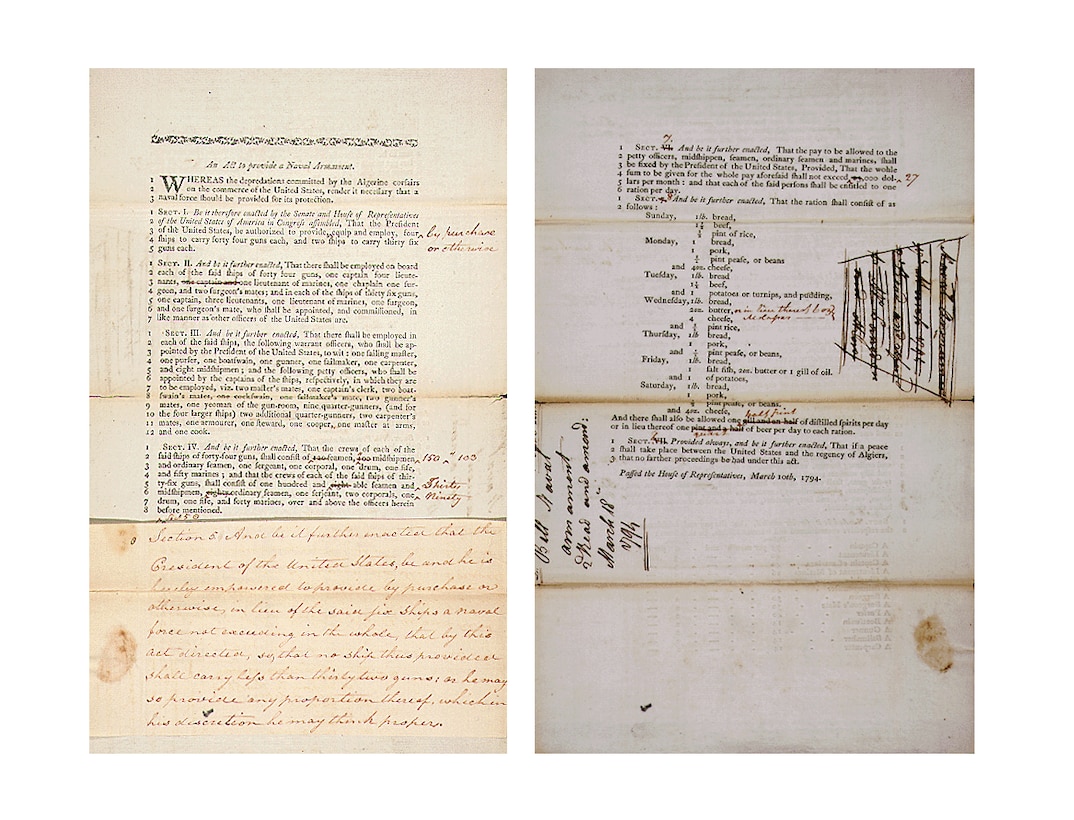 An Act to provide a Naval Armament.
1 WHEREAS the depredations committed by the Algerine corsairs
2 on the commerce of the United States, render it necessary that a
3 naval force should be provided for its protection.
1 SECT. I. Be it therefore enacted by the Senate and House of Representatives
2 of the United States of America in Congress assembled, That the President
3 of the United States, be authorized to provide, equip and employ, four ‸ by purchase
4 ships to carry forty four guns each, and two ships to carry thirty six or otherwise
5 guns each.
1 SECT. II. And be it further enacted, That there shall be employed on board
2 each of the said ships of forty four guns, one captain four lieute-
3 nants, one captain and one lieutenant of marines, one chaplain one sur-
4 geon, and two surgeon's mates; and in each of the ships of thirty six guns,
5 one captain, three lieutenants, one lieutenant of marines, one surgeon,
6 and one surgeon's mate, who shall be appointed, and commissioned, in
7 like manner as other officers of the United States are.
1 SECT. III. And be it further enacted, That there shall be employed in
2 each of the said ships, the following warrant officers, who shall be ap-
3 pointed by the President of the United States, to wit: one sailing master,
4 one purser, one boatswain, one gunner, one sailmaker, one carpenter,
5 and eight midshipmen; and the following petty officers, who shall be
6 appointed by the captains of the ships, respectively, in which they are
7 to be employed, viz. two master's mates, one captain's clerk, two boat-
8 swain's mates, one cockswain, one sailmaker's mate, two gunner's
9 mates, one yeoman of the gun-room, nine quarter-gunners, (and for
10 the four larger ships) two additional quarter-gunners, two carpenter's
11 mates, one armourer, one steward, one cooper, one master at arms,
12 and one cook.
1 SECT. IV. And be it further enacted, That the crews of each of the
2 said ships of forty-four guns, shall consist of seamen, midshipmen 150 103
3 and ordinary seamen, one sergeant, one corporal, one drum, one fife,
4 and fifty marines; and that the crews of each of the said ships of thir-
5 ty-six guns, shall consist of one hundred and eight able seamen and Thirty
6 midshipmen, eighty ordinary seamen, one serjeant, two corporals, one Ninety
7 drum, one fife, and forty marines, over and above the officers herein
8 before mentioned.
Section 5. And be it further enacted that the
President of the United States, be and he is
hereby empowered to provide by purchase or
otherwise, in lieu of the said six ships a naval
force not exceeding in the whole, that by this
act directed, so that no ship thus provided
shall carry less than thirty two guns: or he may
so provide any proportion thereof, which in
his discretion he may think proper.
7.
1 SECT. VI. And be it further enacted, That the pay to be allowed to the
2 petty officers, midshippen, seamen, ordinary seamen and marines, shall
3 be fixed by the President of the United States, Provided, That the wohle
4 sum to be given for the whole pay aforesaid shall not exceed ,000 dol- 27
5 lars per month: and that each of the said persons shall be entitled to one
6 ration per day.
1 SECT. 8 And be it further enacted, That the ration shall consist of as
2 follows:
Sunday, 1lb. bread,
1½ beef,
½ pint of rice,
Monday, 1 bread,
1 pork,
½ pint pease, or beans
and 4oz. cheese,
Tuesday, 1lb. bread
1½ beef,
and 1 potatoes or turnips, and pudding,
Wednesday, 1lb. bread,
2oz. butter, or in lieu thereof 6 oz
4 cheese, Molasses
and ½ pint rice,
Thursday, 1lb. bread,
1 pork,
and ½ pint pease or beans,
Friday, 1lb. bread,
1 salt fish, 2oz. butter or 1 gill of oil.
and 1 of potatoes,
Saturday, 1lb. bread,
1 pork,
½ pint pease, or beans.
and 4oz. cheese, half pint
And there shall also be allowed one gill and an half of distilled spirits per day
or in lieu thereof one pint and a half of beer per day to each ration.
quart
1 SECT. VII. Provided always, and be it further enacted, That if a peace
2 shall take place between the United States and the regency of Algiers,
3 that no farther proceedings be had under this act.
Passed the House of Representatives, March 10th, 1794.
Bill Naval
armament
2 Read and amend:
March 18
1794